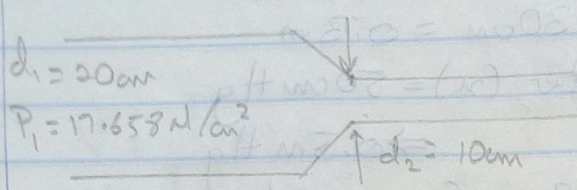 d₁ = 20cm
P₁ = 17.658 N/cm²
d₂ = 10cm